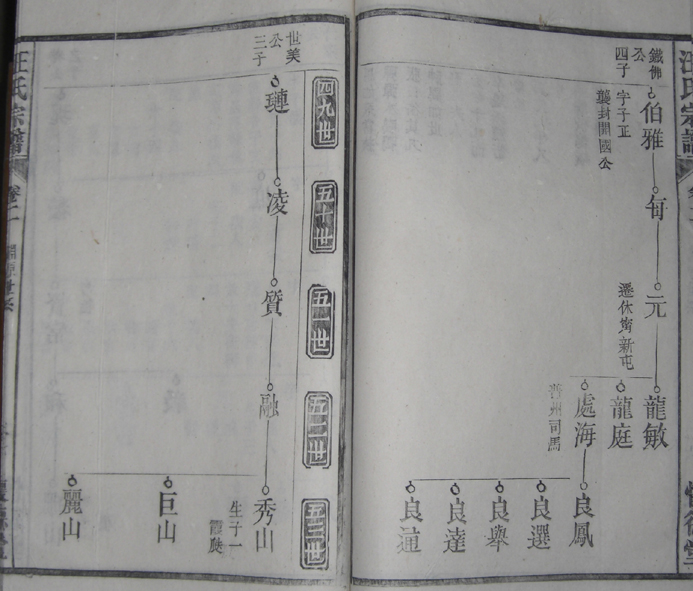 汪氏宗譜
鐵佛
公
四子
伯雅
字子正
襲封開國公
每
元
遷休甯新屯
龍敏
龍庭
處海
晉州司馬
良鳳
良選
良舉
良達
良𨓜
四九世
五十世
五一世
五二世
五三世
世美
公
三子
璉
凌
質
融
秀山
生子一
巨山
麗山
汪氏宗譜
卷之一